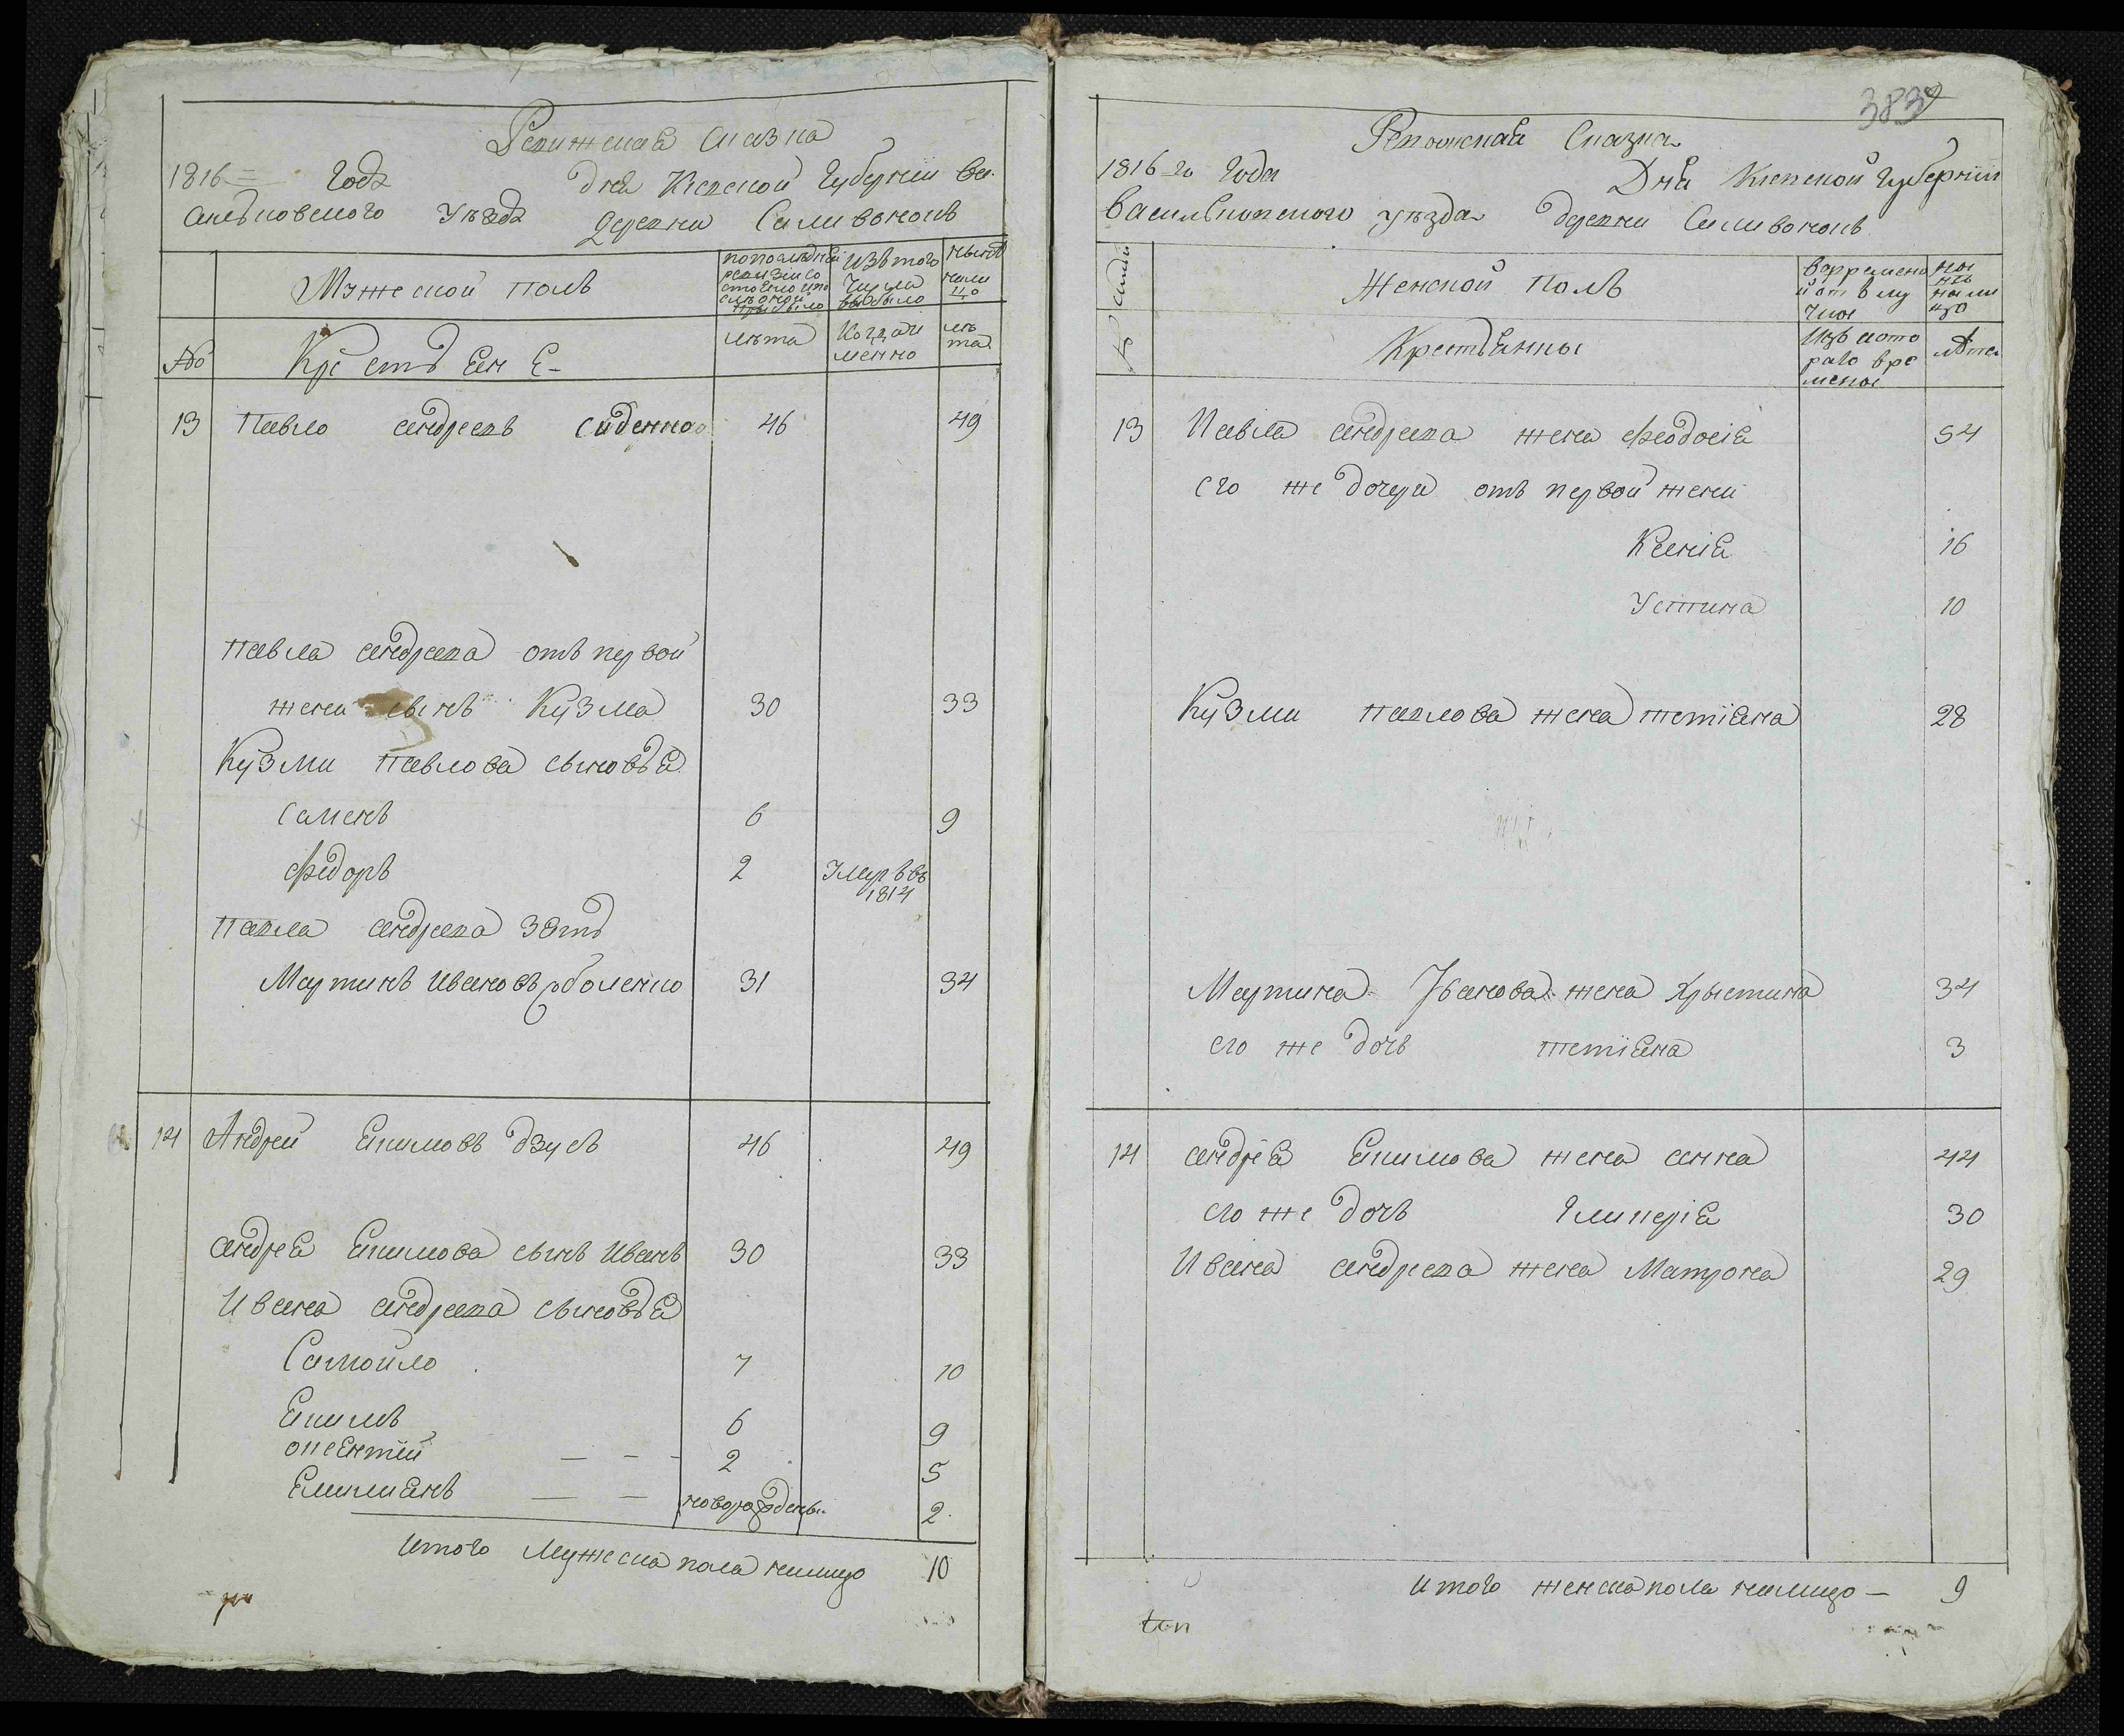 Ревижская сказка
1816 = года дня Киевской Губернии Ва-
силковского уезда деревни Саливонокъ
Мужеской полъ
по последней ревизии состояло и после оной прибыло
изъ того числа выбыло
ныне на лицо
№
Крестьяне
лета
когда именно
лета
13 Павло андреевъ Сиденко 46 49
Павла андреева отъ первой
жени сынъ Кузма 30 33
Кузми павлова сыновья
Семенъ 6 9
Федоръ 2 умръ въ 1814
Павла андреева зять
Мартинъ Ивановъ оболенко 31 34
14 Андрей Екимовъ дзусь 46 49
андрея Екимова сынъ Иванъ 30 33
Ивана андреева сыновья
Самойло 7 10
Екимъ 6 9
оксентий — — 2 5
Емилиянъ — — новорожденъ 2
итого Мужеска пола налицо 10
3839
Ревижская Сказка
1816-го года Дня Киевской Губернии
Васильковского уезда деревни Саливонокъ
Женской полъ
временной отлучке
ныне на лицо
№ семьи
Крестьянки
изъ которого времени
лета
13 Павла андреева жена феодосия 54
его же дочери отъ первой жени
Ксения 16
Устина 10
Кузми павлова жена тетiяна 28
Мартина Иванова жена Христина 34
его же дочь тетiяна 3
14 андрея Екимова жена анна 44
его же дочь Гликерiя 30
Ивана андреева жена Матрона 29
итого женска пола налицо — 9